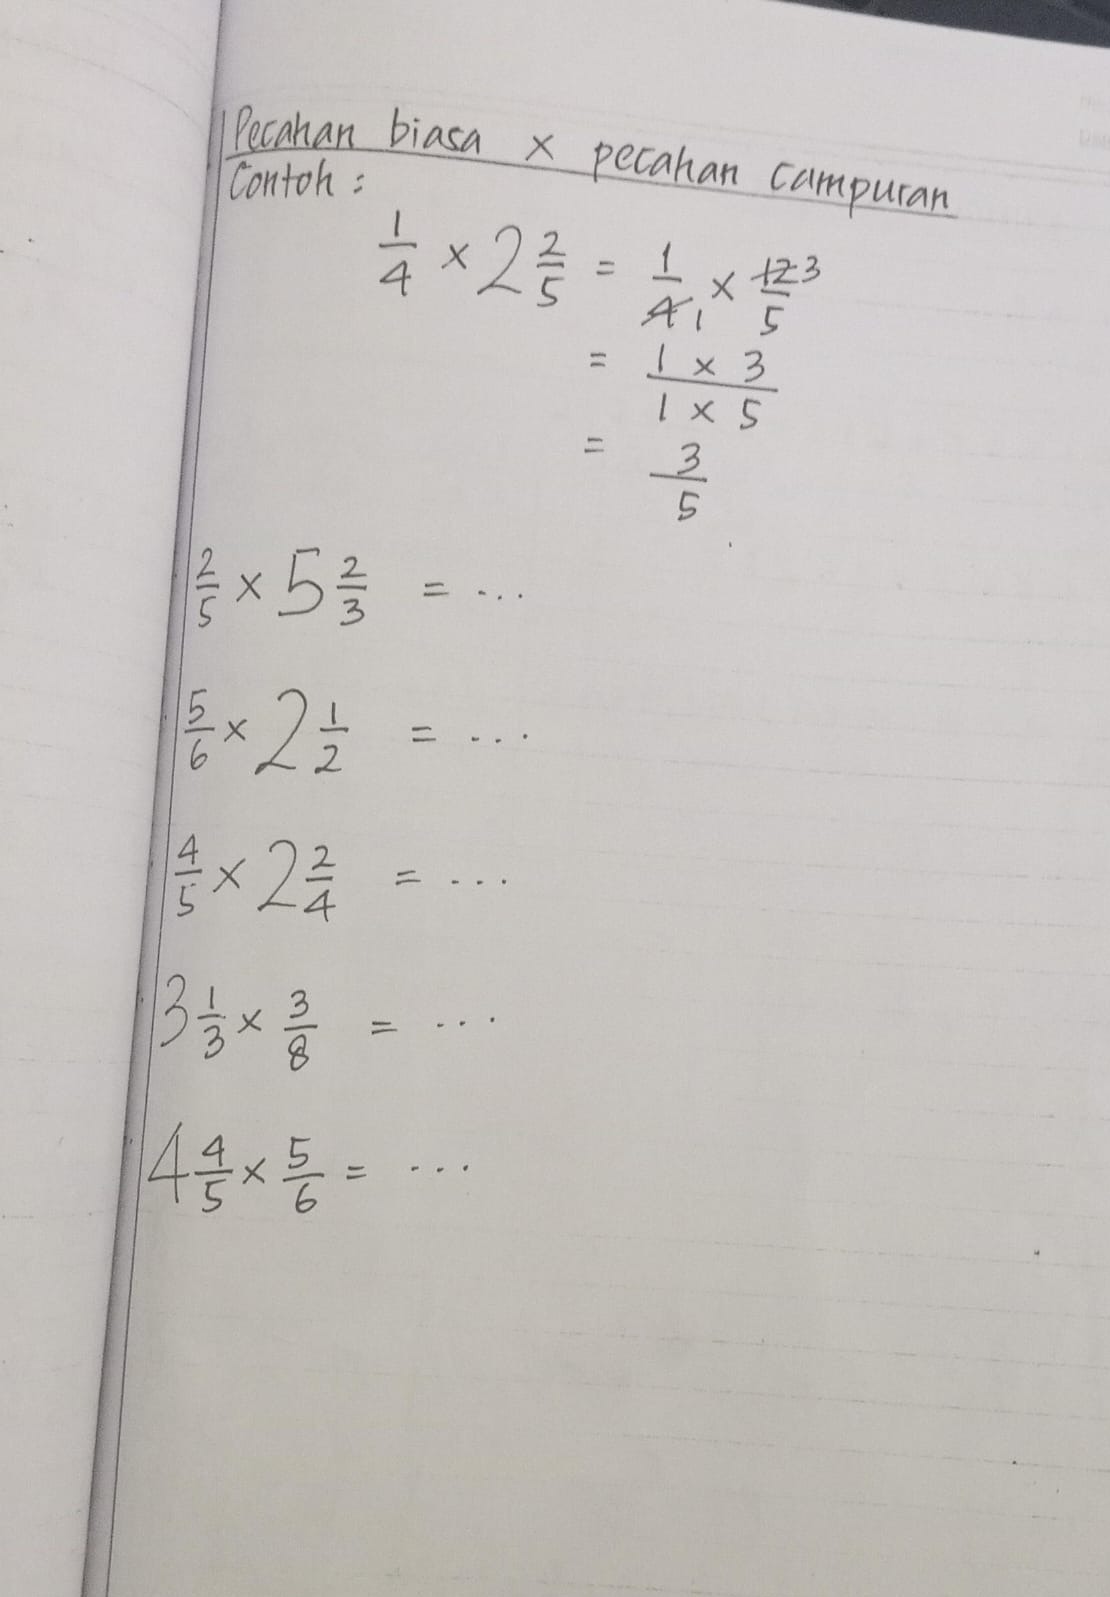 Pecahan biasa × pecahan campuran
Contoh :
1/4 × 2 2/5 = 1/4 1 × 12 3/5
= 1 × 3 / 1 × 5
= 3/5
2/5 × 5 2/3 = ...
5/6 × 2 1/2 = ...
4/5 × 2 2/4 = ...
3 1/3 × 3/8 = ...
4 4/5 × 5/6 = ...